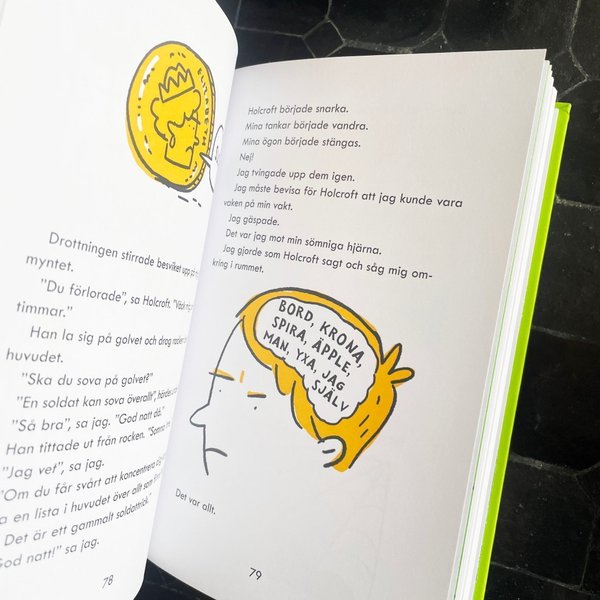 ELIZABETH
Drottningen stirrade besviket upp på
myntet.
"Du förlorade", sa Holcroft. "Väck mig
timmar."
Han la sig på golvet och drog rocken
huvudet.
"Ska du sova på golvet?"
"En soldat kan sova överallt",
"Så bra", sa jag. "God natt då."
Han tittade ut från rocken.
"Jag vet", sa jag.
"Om du får svårt att koncentrera
en lista i huvudet över allt som
Det är ett gammalt soldattrick."
God natt!" sa jag.
78
Holcroft började snarka.
Mina tankar började vandra.
Mina ögon började stängas.
Nej!
Jag tvingade upp dem igen.
Jag måste bevisa för Holcroft att jag kunde vara
vaken på min vakt.
Jag gäspade.
Det var jag mot min sömniga hjärna.
Jag gjorde som Holcroft sagt och såg mig om-
kring i rummet.
BORD, KRONA,
SPIRA, ÄPPLE,
MAN, YXA, JAG
SJÄLV
Det var allt.
79